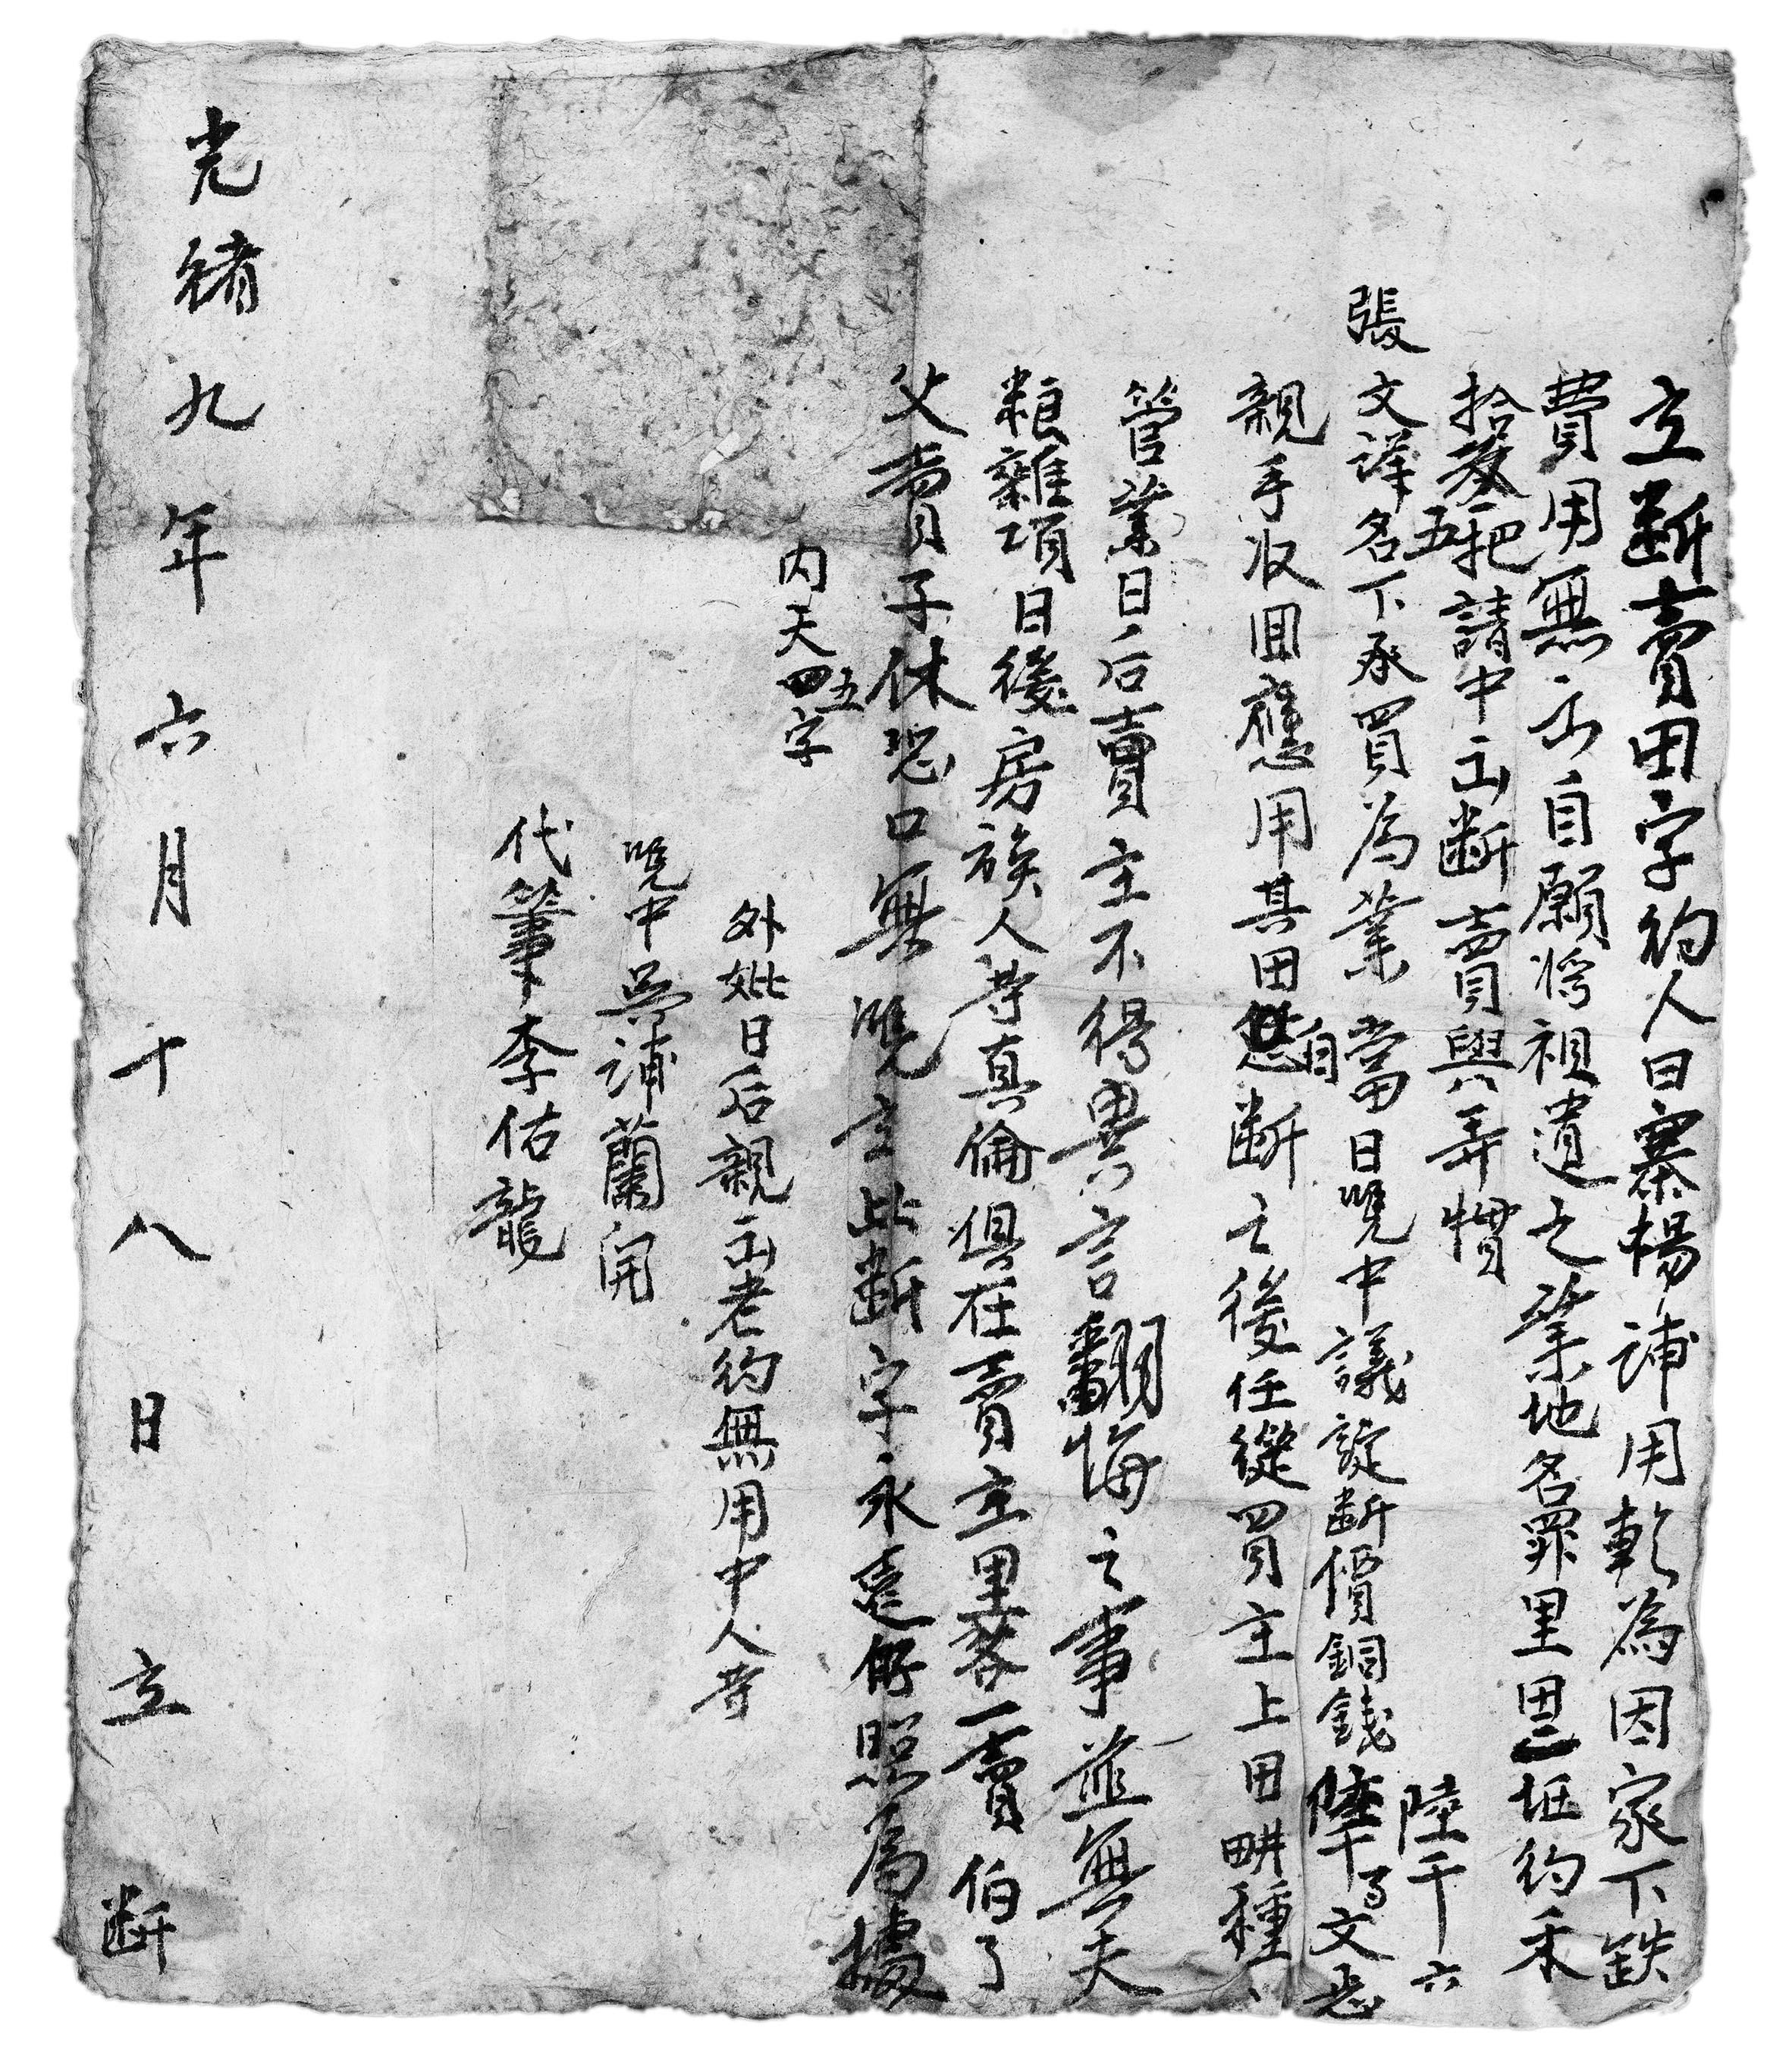 立斷賣田字約人日寨楊譜用乾為因家下缺
費用無出自願將祖遺之業地名罪里田三坵約禾
拾五把請中出斷賣與弄慣
張文譯名下承買為業當日憑中議定斷價銅錢陸千六百文忽
親手收囬應用其田自斷之後任從買主上田畊種
管業日后賣主不得異言翻悔之事並無夫
粮雜項日後房族人等真倫俱在賣主里落一賣伯了
父賣子休恐口無憑立此斷字永遠存照為據
内天五字
外妣日后親出老約無用中人等
憑中吳譜蘭開
代筆李佑龍
光緒九年六月十八日立斷